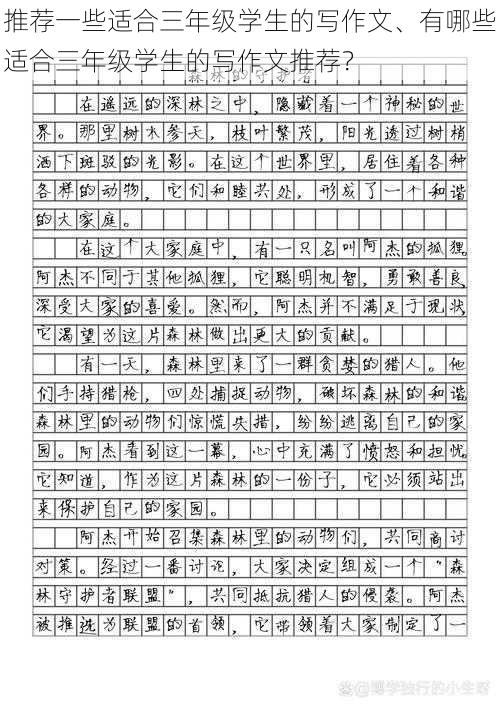 推荐一些适合三年级学生的写作文、有哪些
适合三年级学生的写作文推荐？
森林的守护者
在遥远的深林之中，隐藏着一个神秘的世
界。那里树木参天，枝叶繁茂，阳光透过树梢
洒下斑驳的光影。在这个世界里，居住着各种
各样的动物，它们和睦共处，形成了一个和谐
的大家庭。
在这个大家庭中，有一只名叫阿杰的狐狸。
阿杰不同于其他狐狸，它聪明机智，勇敢善良，
深受大家的喜爱。然而，阿杰并不满足于现状，
它渴望为这片森林做出更大的贡献。
有一天，森林里来了一群贪婪的猎人。他
们手持猎枪，四处捕捉动物，破坏森林的和谐
森林里的动物们惊慌失措，纷纷逃离自己的家
园。阿杰看到这一幕，心中充满了愤怒和担忧。
它知道，作为这片森林的一份子，它必须站出
来保护自己的家园。
阿杰开始召集森林里的动物们，共同商讨
对策。经过一番讨论，大家决定组成一个"森
林守护者联盟"，共同抵抗猎人的侵袭。阿杰
被推选为联盟的首领，它带领着大家制定了一
@博学独行的小生呀